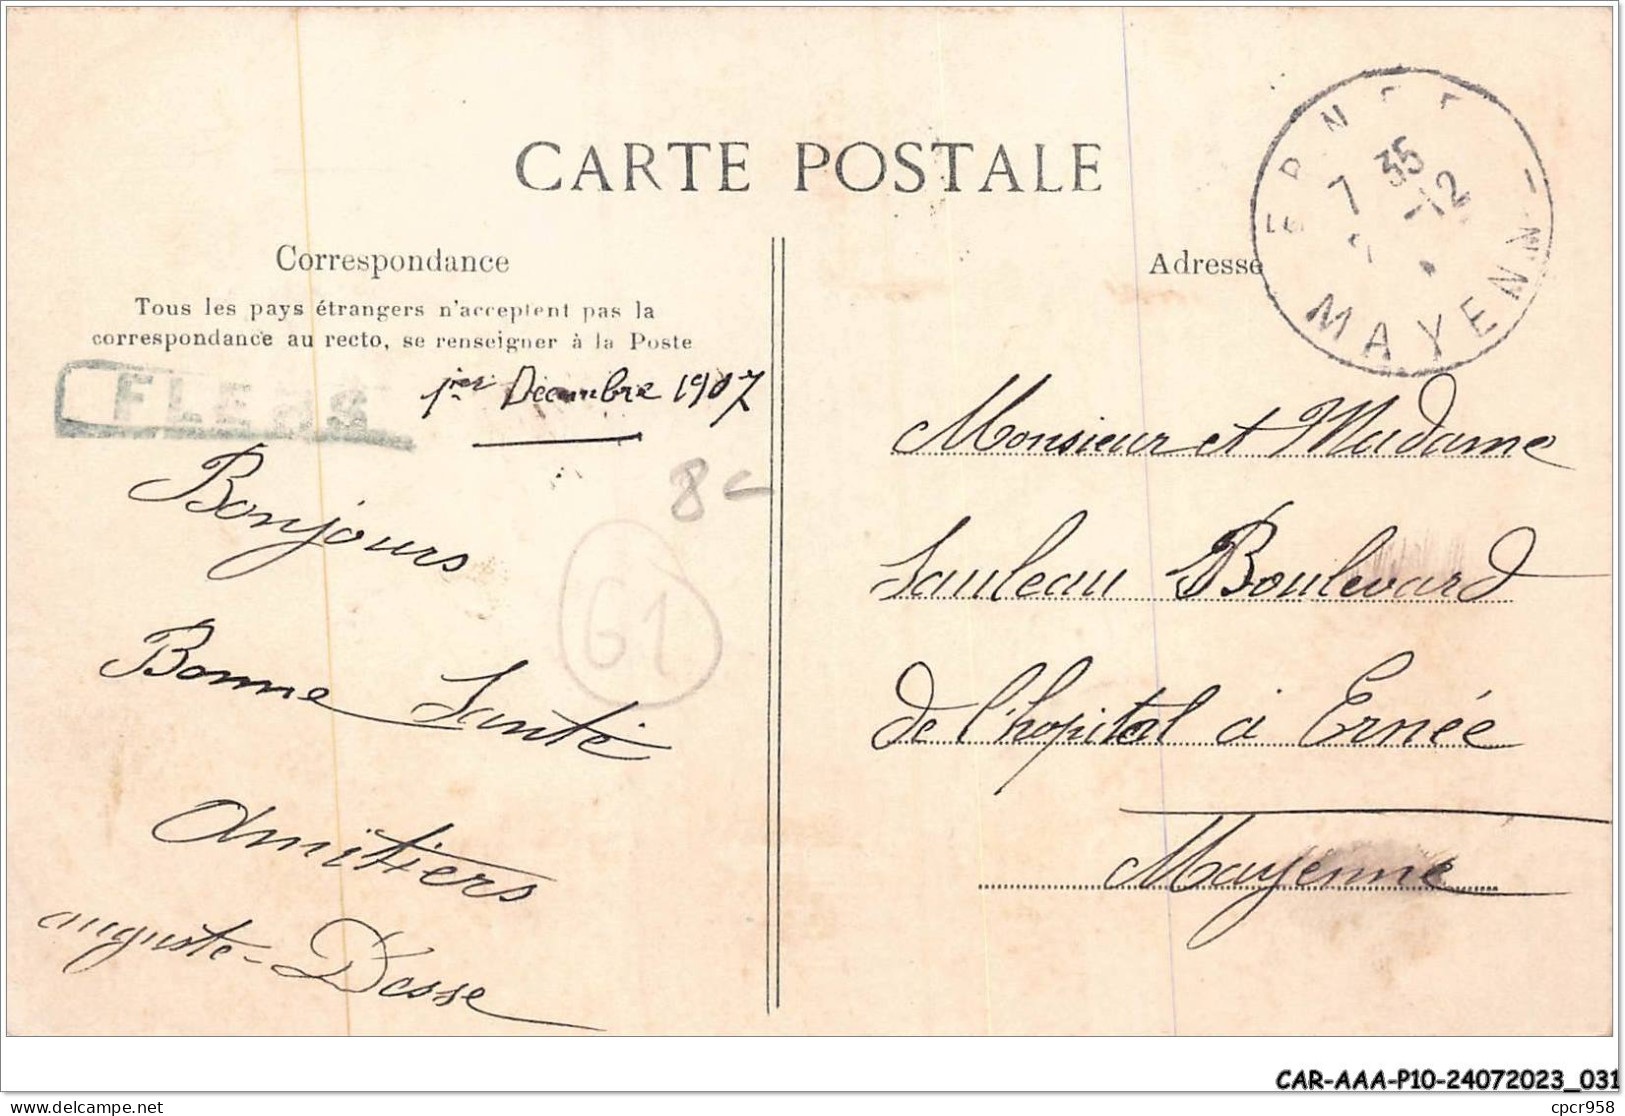 CARTE POSTALE
Correspondance
Tous les pays étrangers n'acceptent pas la
correspondance au recto, se renseigner à la Poste
FLERS
1er Décembre 1907
Bonjours
Bonne Santé
Amitiers
auguste-Desse
8-
G1
Adresse
ERNEE
7 35
-12
MAYENNE
Monsieur et Madame
Sauleau Boulevard
de l'hopital à Ernée
Mayenne
CAR-AAA-P10-24072023_031
delcampe.net
cpcr958